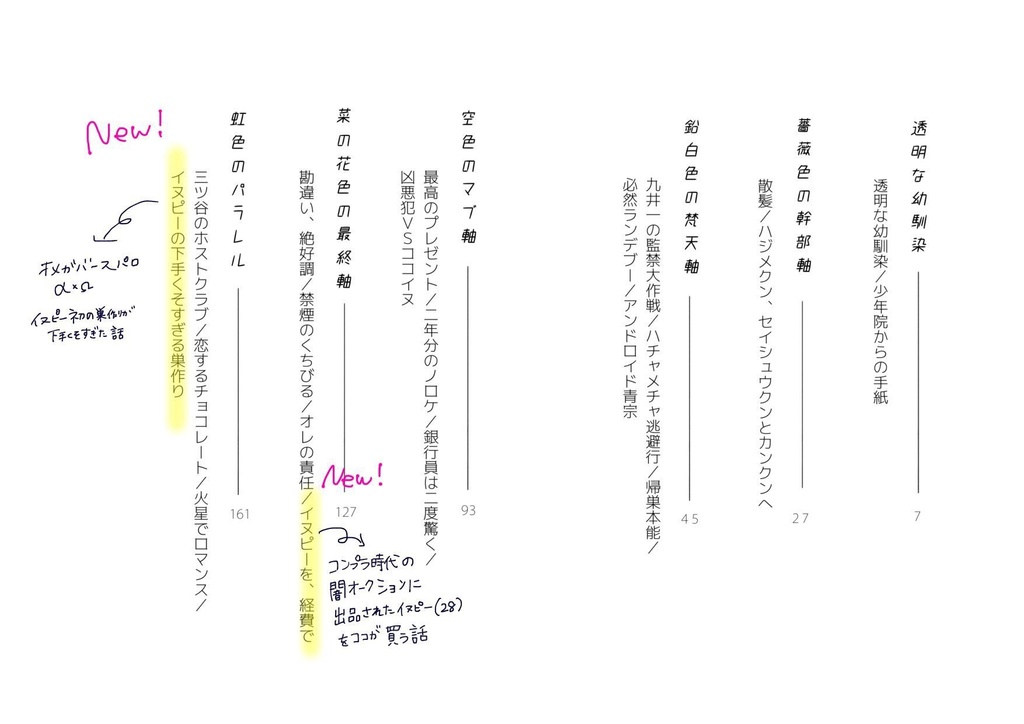 透明な幼馴染
7
透明な幼馴染/少年院からの手紙
薔薇色の幹部軸
27
散髪/ハジメクン、セイシュウクンとカンクンへ
鉛白色の梵天軸
45
九井一の監禁大作戦/ハチャメチャ逃避行/帰巣本能/
必然ランデブー/アンドロイド青宗
空色のマブ軸
93
最高のプレゼント/二年分のノロケ/銀行員は二度驚く/
凶悪犯VSココイヌ
菜の花色の最終軸
127
勘違い、絶好調/禁煙のくちびる/オレの責任/イヌピーを、経費で
New!
コンプラ時代の
闇オークションに
出品されたイヌピー(28)
をココが買う話
虹色のパラレル
161
三ツ谷のホストクラブ/恋するチョコレート/火星でロマンス/
イヌピーの下手くそすぎる巣作り
New!
オメガバースパロ
α×Ω
イヌピー初の巣作りが
下手くそすぎた話